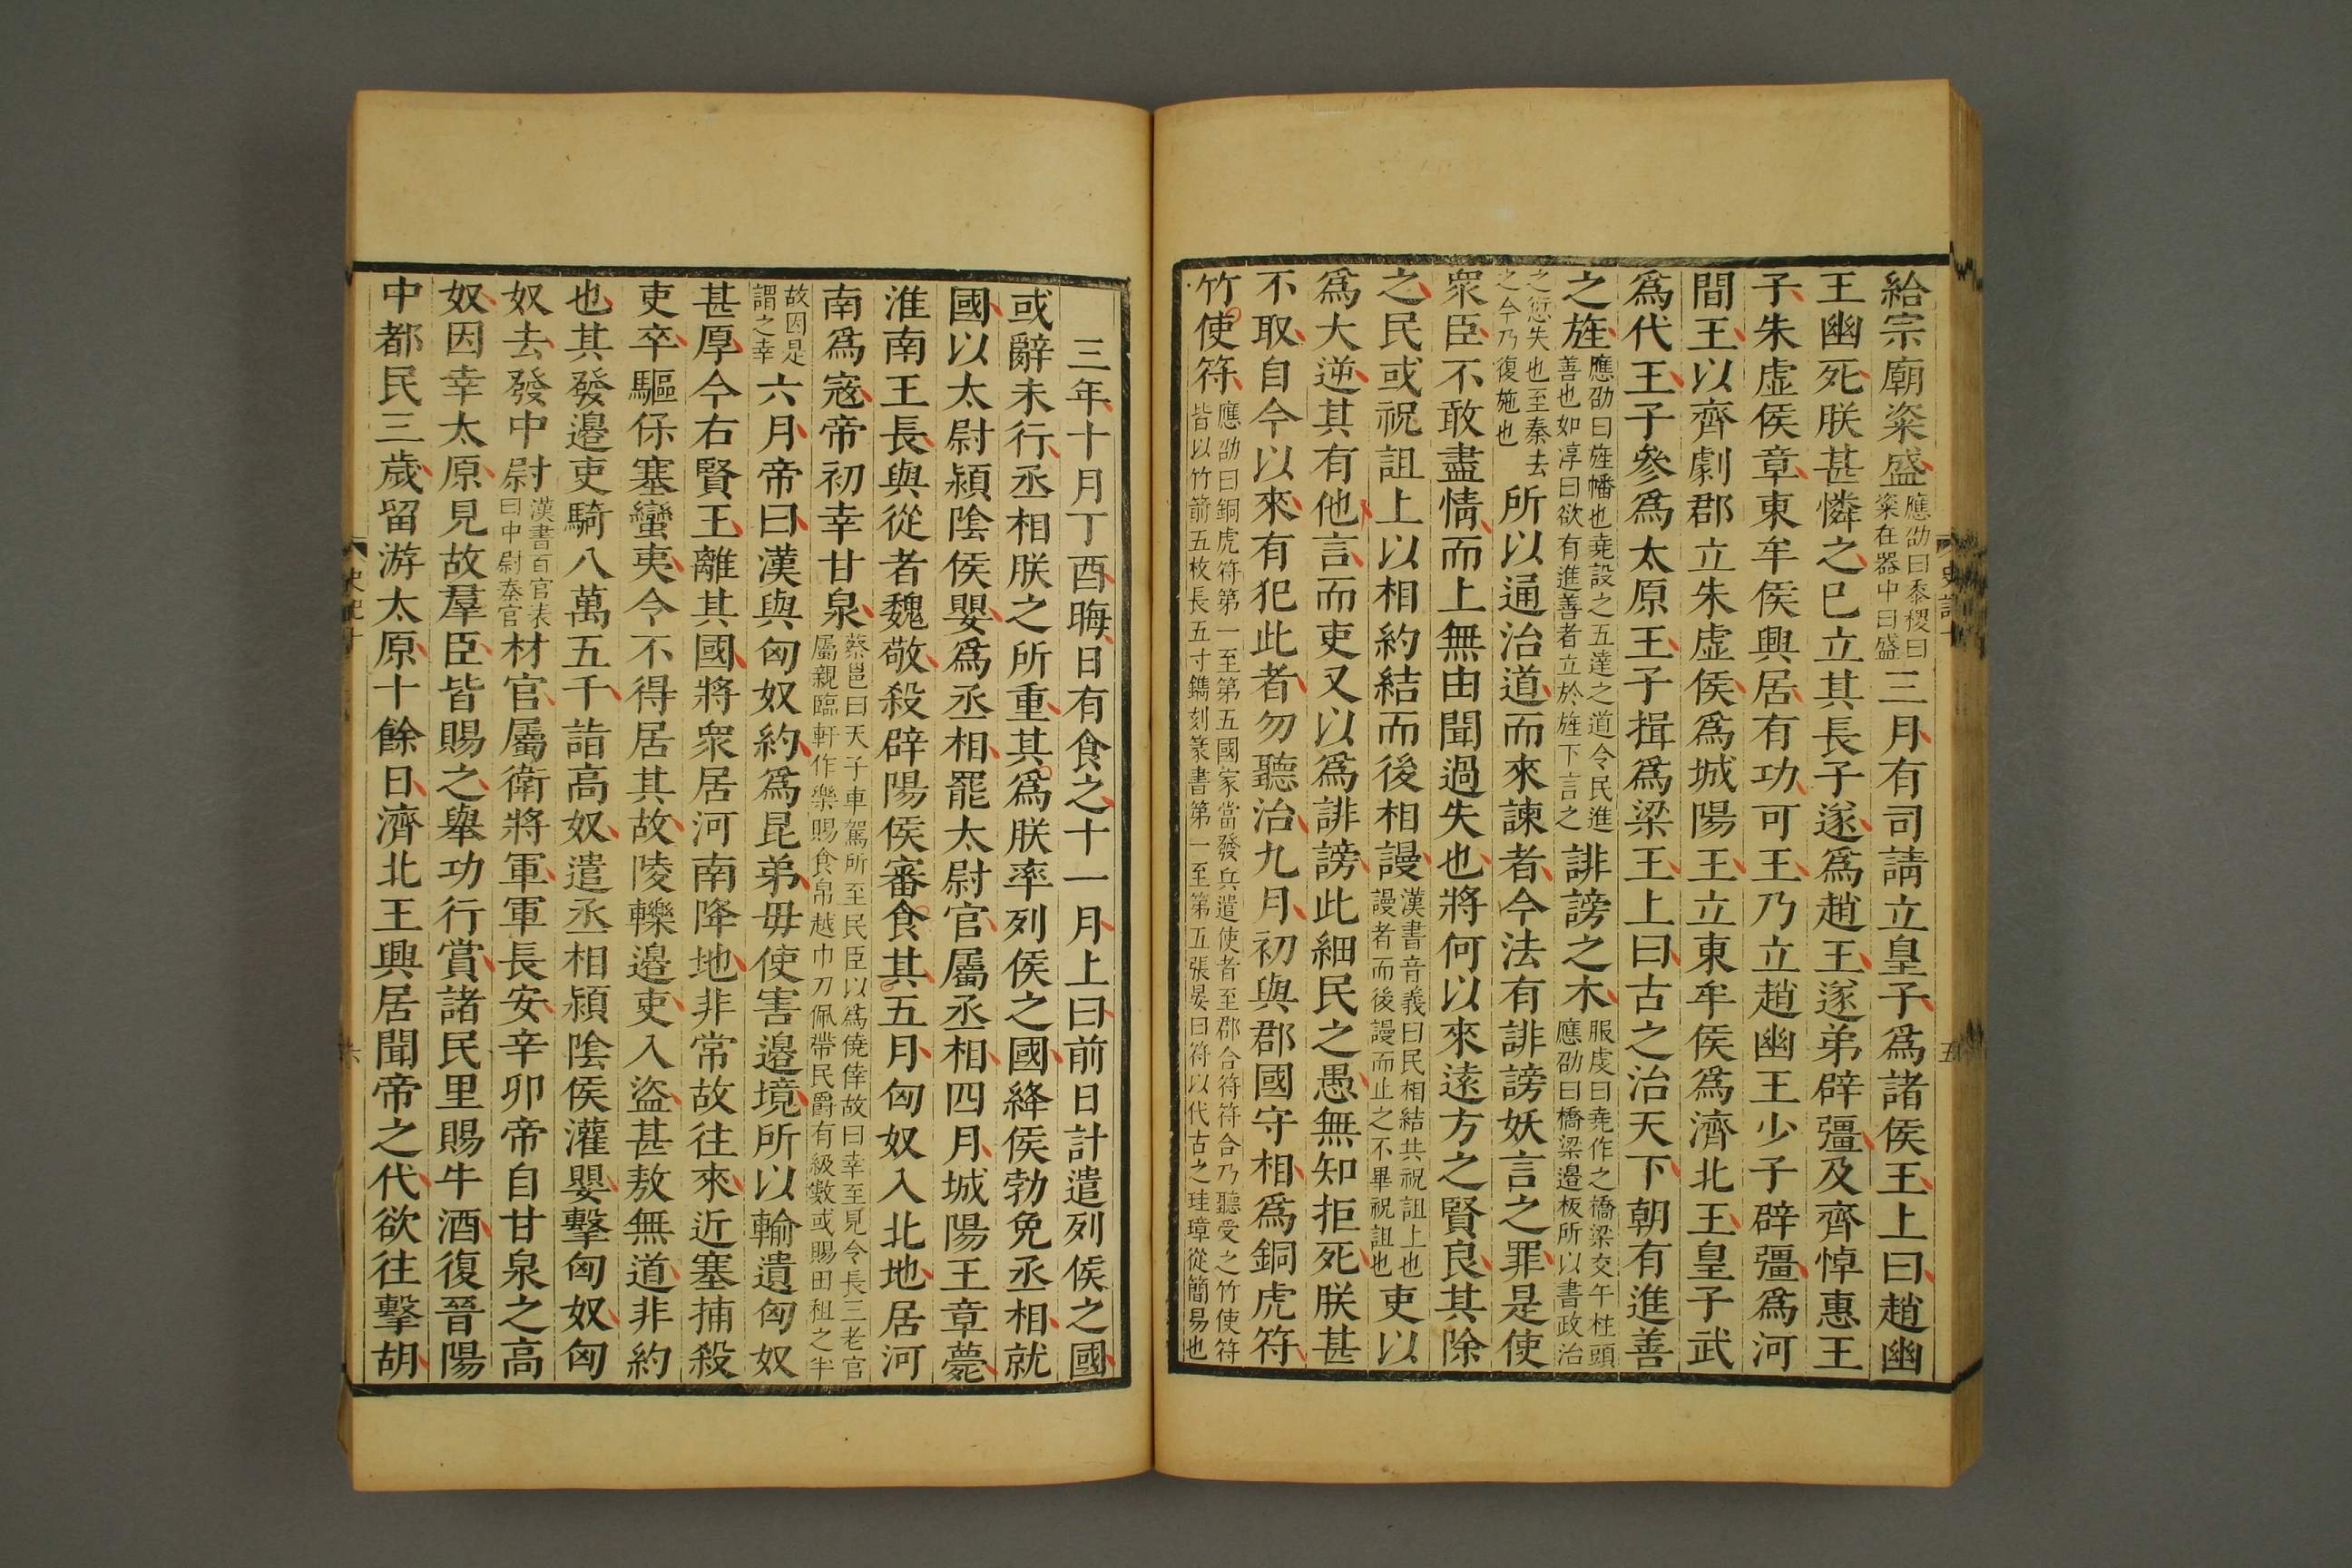 給宗廟粢盛應劭曰黍稷曰粢在器中曰盛三月有司請立皇子爲諸侯王上曰趙幽
王幽死朕甚憐之已立其長子遂爲趙王遂弟辟彊及齊悼惠王
子朱虛侯章東牟侯興居有功可王乃立趙幽王少子辟彊爲河
間王以齊劇郡立朱虛侯爲城陽王立東牟侯爲濟北王皇子武
爲代王子參爲太原王子揖爲梁王上曰古之治天下朝有進善
之旌應劭曰旌幡也堯設之五達之道令民進善也如淳曰欲有進善者立於旌下言之誹謗之木服虔曰堯作之橋梁交午柱頭應劭曰橋梁邉板所以書政治
之愆失也至秦去之今乃復施也所以通治道而來諫者今法有誹謗妖言之罪是使
衆臣不敢盡情而上無由聞過失也將何以來逺方之賢良其除
之民或祝詛上以相約結而後相謾漢書音義曰民相結共祝詛上也謾者而後謾而止之不畢祝詛也吏以
爲大逆其有他言而吏又以爲誹謗此細民之愚無知抵死朕甚
不取自今以來有犯此者勿聽治九月初與郡國守相爲銅虎符
竹使符應劭曰銅虎符第一至第五國家當發兵遣使者至郡合符符合乃聽受之竹使符皆以竹箭五枚長五寸鐫刻篆書第一至第五張晏曰符以代古之珪璋從簡易也
三年十月丁酉晦日有食之十一月上曰前日計遣列侯之國
或辭未行丞相朕之所重其爲朕率列侯之國絳侯勃免丞相就
國以太尉潁陰侯嬰爲丞相罷太尉官屬丞相四月城陽王章薨
淮南王長與從者魏敬殺辟陽侯審食其五月匈奴入北地居河
南爲寇帝初幸甘泉蔡邕曰天子車駕所至民臣以爲僥倖故曰幸至見令長三老官屬親臨軒作樂賜食帛越巾刀佩帶民爵有級數或賜田租之半
故因是謂之幸六月帝曰漢與匈奴約爲昆弟毋使害邉境所以輸遺匈奴
甚厚今右賢王離其國將衆居河南降地非常故往來近塞捕殺
吏卒驅保塞蠻夷令不得居其故陵轢邉吏入盜甚敖無道非約
也其發邉吏騎八萬五千詣高奴遣丞相潁陰侯灌嬰擊匈奴匈
奴去發中尉漢書百官表曰中尉秦官材官屬衛將軍軍長安辛卯帝自甘泉之高
奴因幸太原見故羣臣皆賜之舉功行賞諸民里賜牛酒復晉陽
中都民三歲留游太原十餘日濟北王興居聞帝之代欲往擊胡